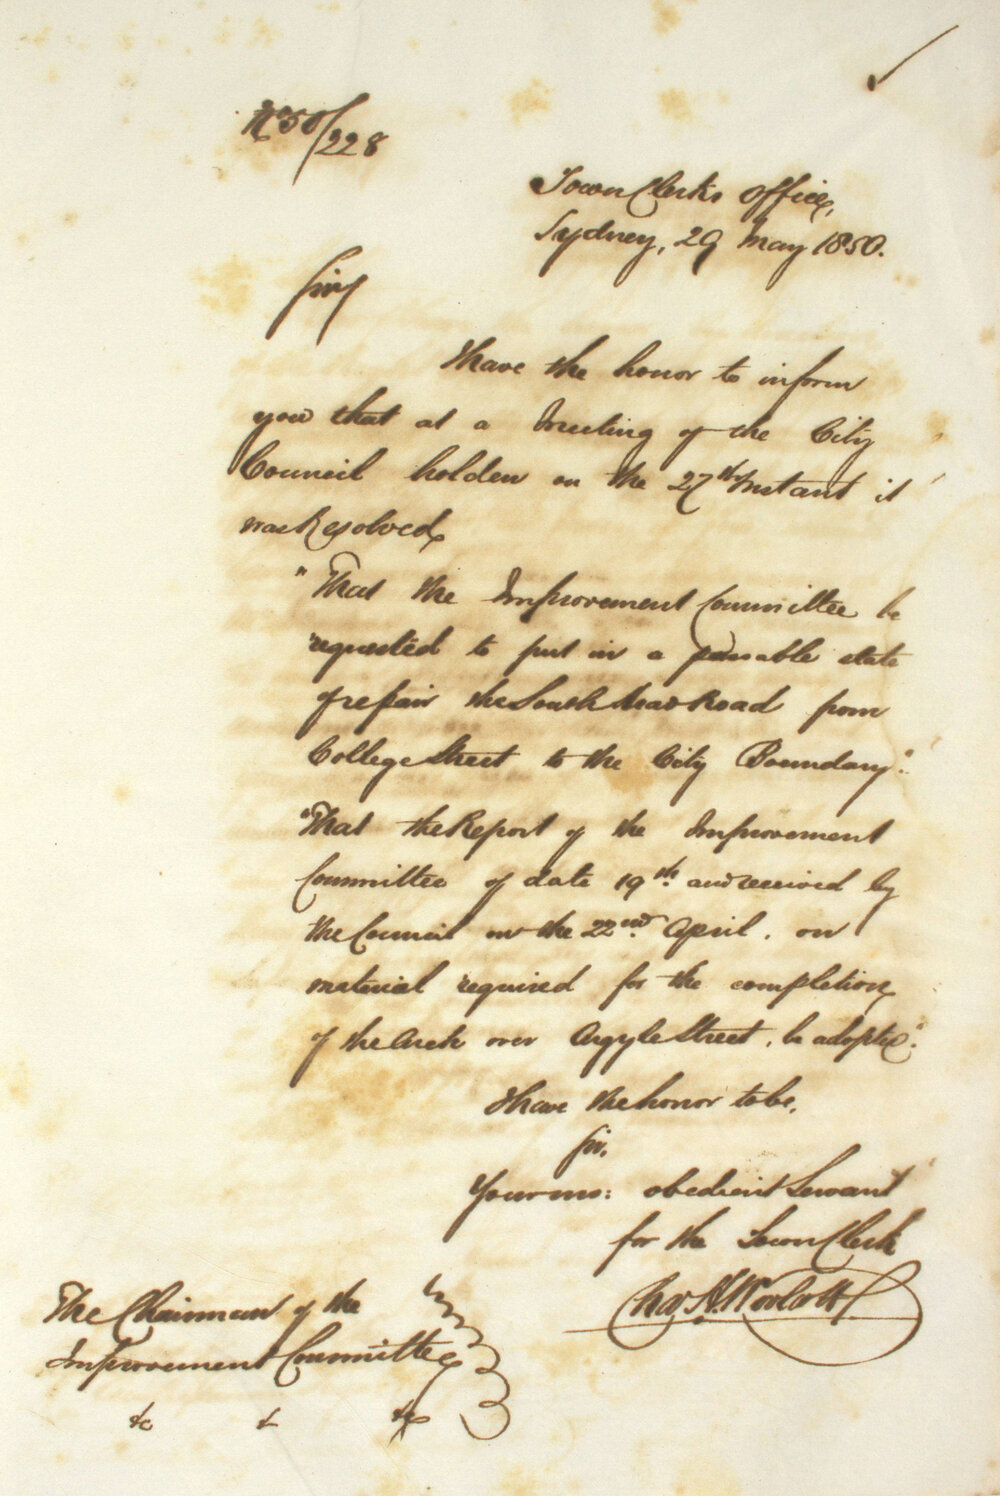 No 50/228
Town Clerks Office,
Sydney, 29 May 1850.
Sir,
I have the honor to inform
you that at a Meeting of the City
Council holden on the 27th Instant it
was Resolved,
"That the Improvement Committee be
requested to put in a passable state
of repair the South Head Road from
College Street to the City Boundary".
"That the Report of the Improvement
Committee of date 19th and received by
the Council on the 22nd April, on
material required for the completion
of the Arch over Argyle Street, be adopted".
I have the honor to be,
Sir,
Your mo: obedient Servant
for the Town Clerk
Chas H. Woolcott
The Chairman of the
Improvement Committee
&c & &c